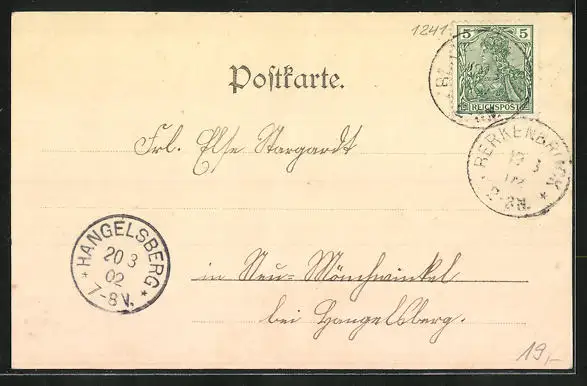 1241
5 5
REICHSPOST
Postkarte.
BERKENBRÜCK
19 3
02
2-3N.
Frl. Else Stargardt
HANGELSBERG
20 3
02
7-8V.
in Neu-Mönchwinkel
bei Hangelsberg.
19,-